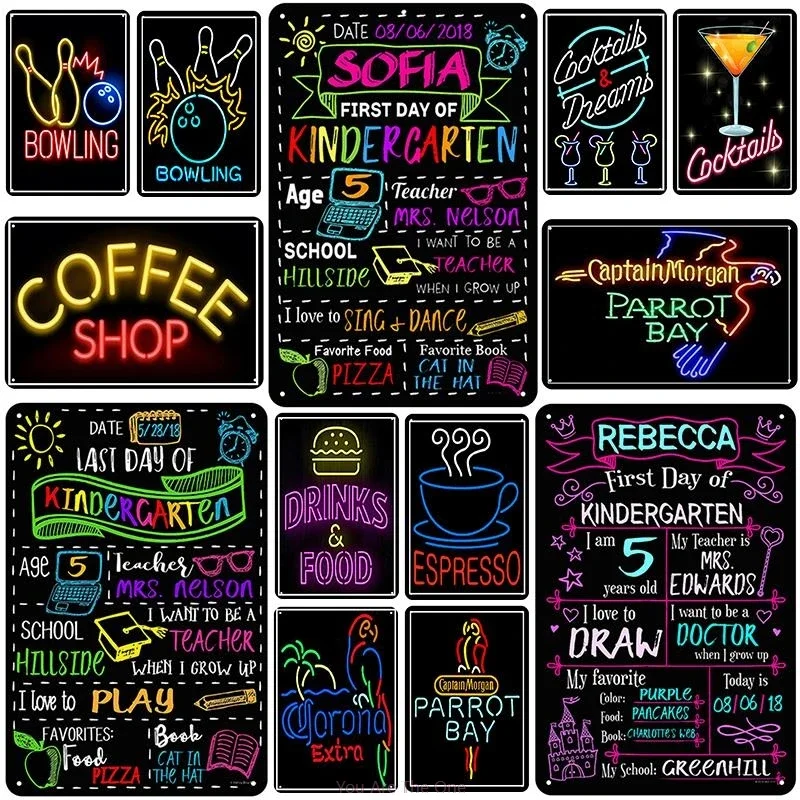 BOWLING
BOWLING
DATE 08/06/2018
SOFIA
FIRST DAY OF
KINDERGARTEN
Age 5
Teacher
MRS. NELSON
SCHOOL
HILLSIDE
I WANT TO BE A
TEACHER
WHEN I GROW UP
I love to SING & DANCE
Favorite Food
PIZZA
Favorite Book
CAT IN
THE HAT
Cocktails
&
Dreams
Cocktails
COFFEE
SHOP
Captain Morgan
PARROT
BAY
DATE 5/28/18
LAST DAY OF
KINDERGARTEN
Age 5
Teacher
MRS. NELSON
SCHOOL
HILLSIDE
I WANT TO BE A
TEACHER
WHEN I GROW UP
I love to PLAY
FAVORITES:
Food
PIZZA
Book
CAT IN
THE HAT
DRINKS
&
FOOD
ESPRESSO
Corona
Extra
Captain Morgan
PARROT
BAY
REBECCA
First Day of
KINDERGARTEN
I am
5
years old
My Teacher is
MRS.
EDWARDS
I love to
DRAW
I want to be a
DOCTOR
when I grow up
My favorite
Color: PURPLE
Food: PANCAKES
Book: CHARLOTTE'S WEB
Today is
08/06/18
My School: GREENHILL
You Are The One